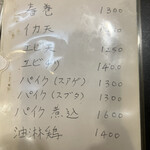 春巻 1300
イカ天 1300
エビ天 1250
エビ 1400
パイク(スアゲ) 1300
パイク(スブタ) 1300
パイク煮込 1600
油淋鶏 1400